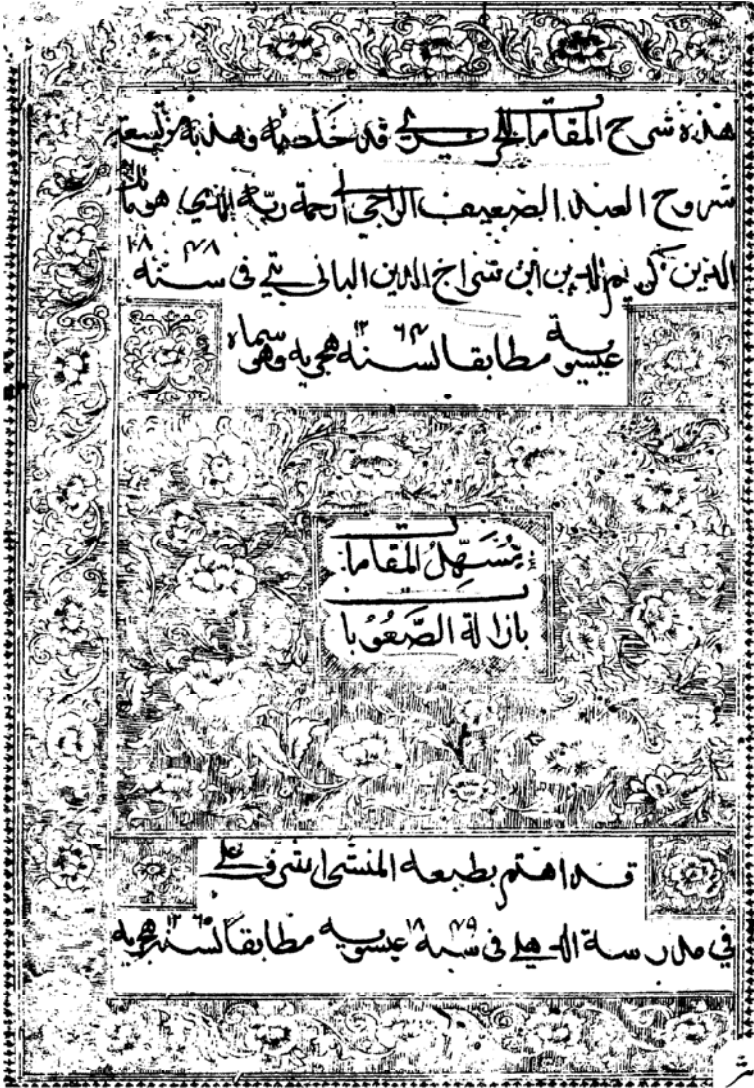 هذه شرح المقامات الحريري قد خلصته وهذبته من تسعة
شروح العبد الضعيف الراجي الى رحمة ربه الذي هو
الدين كريم الدين ابن سراج الدين الباني پتي فی سنه ۱۸۴۸
عيسويه مطابقا لسنه ۱۲۶۴ هجريه وهو سماه
تُسَهِّلُ المقامات
بازالة الصَّعُوُبات
قد اهتم بطبعه المنشی اشرف علی
في مدرسة الدهلي فی سنه ۱۸۴۹ عيسويه مطابقا لسنه هجريه